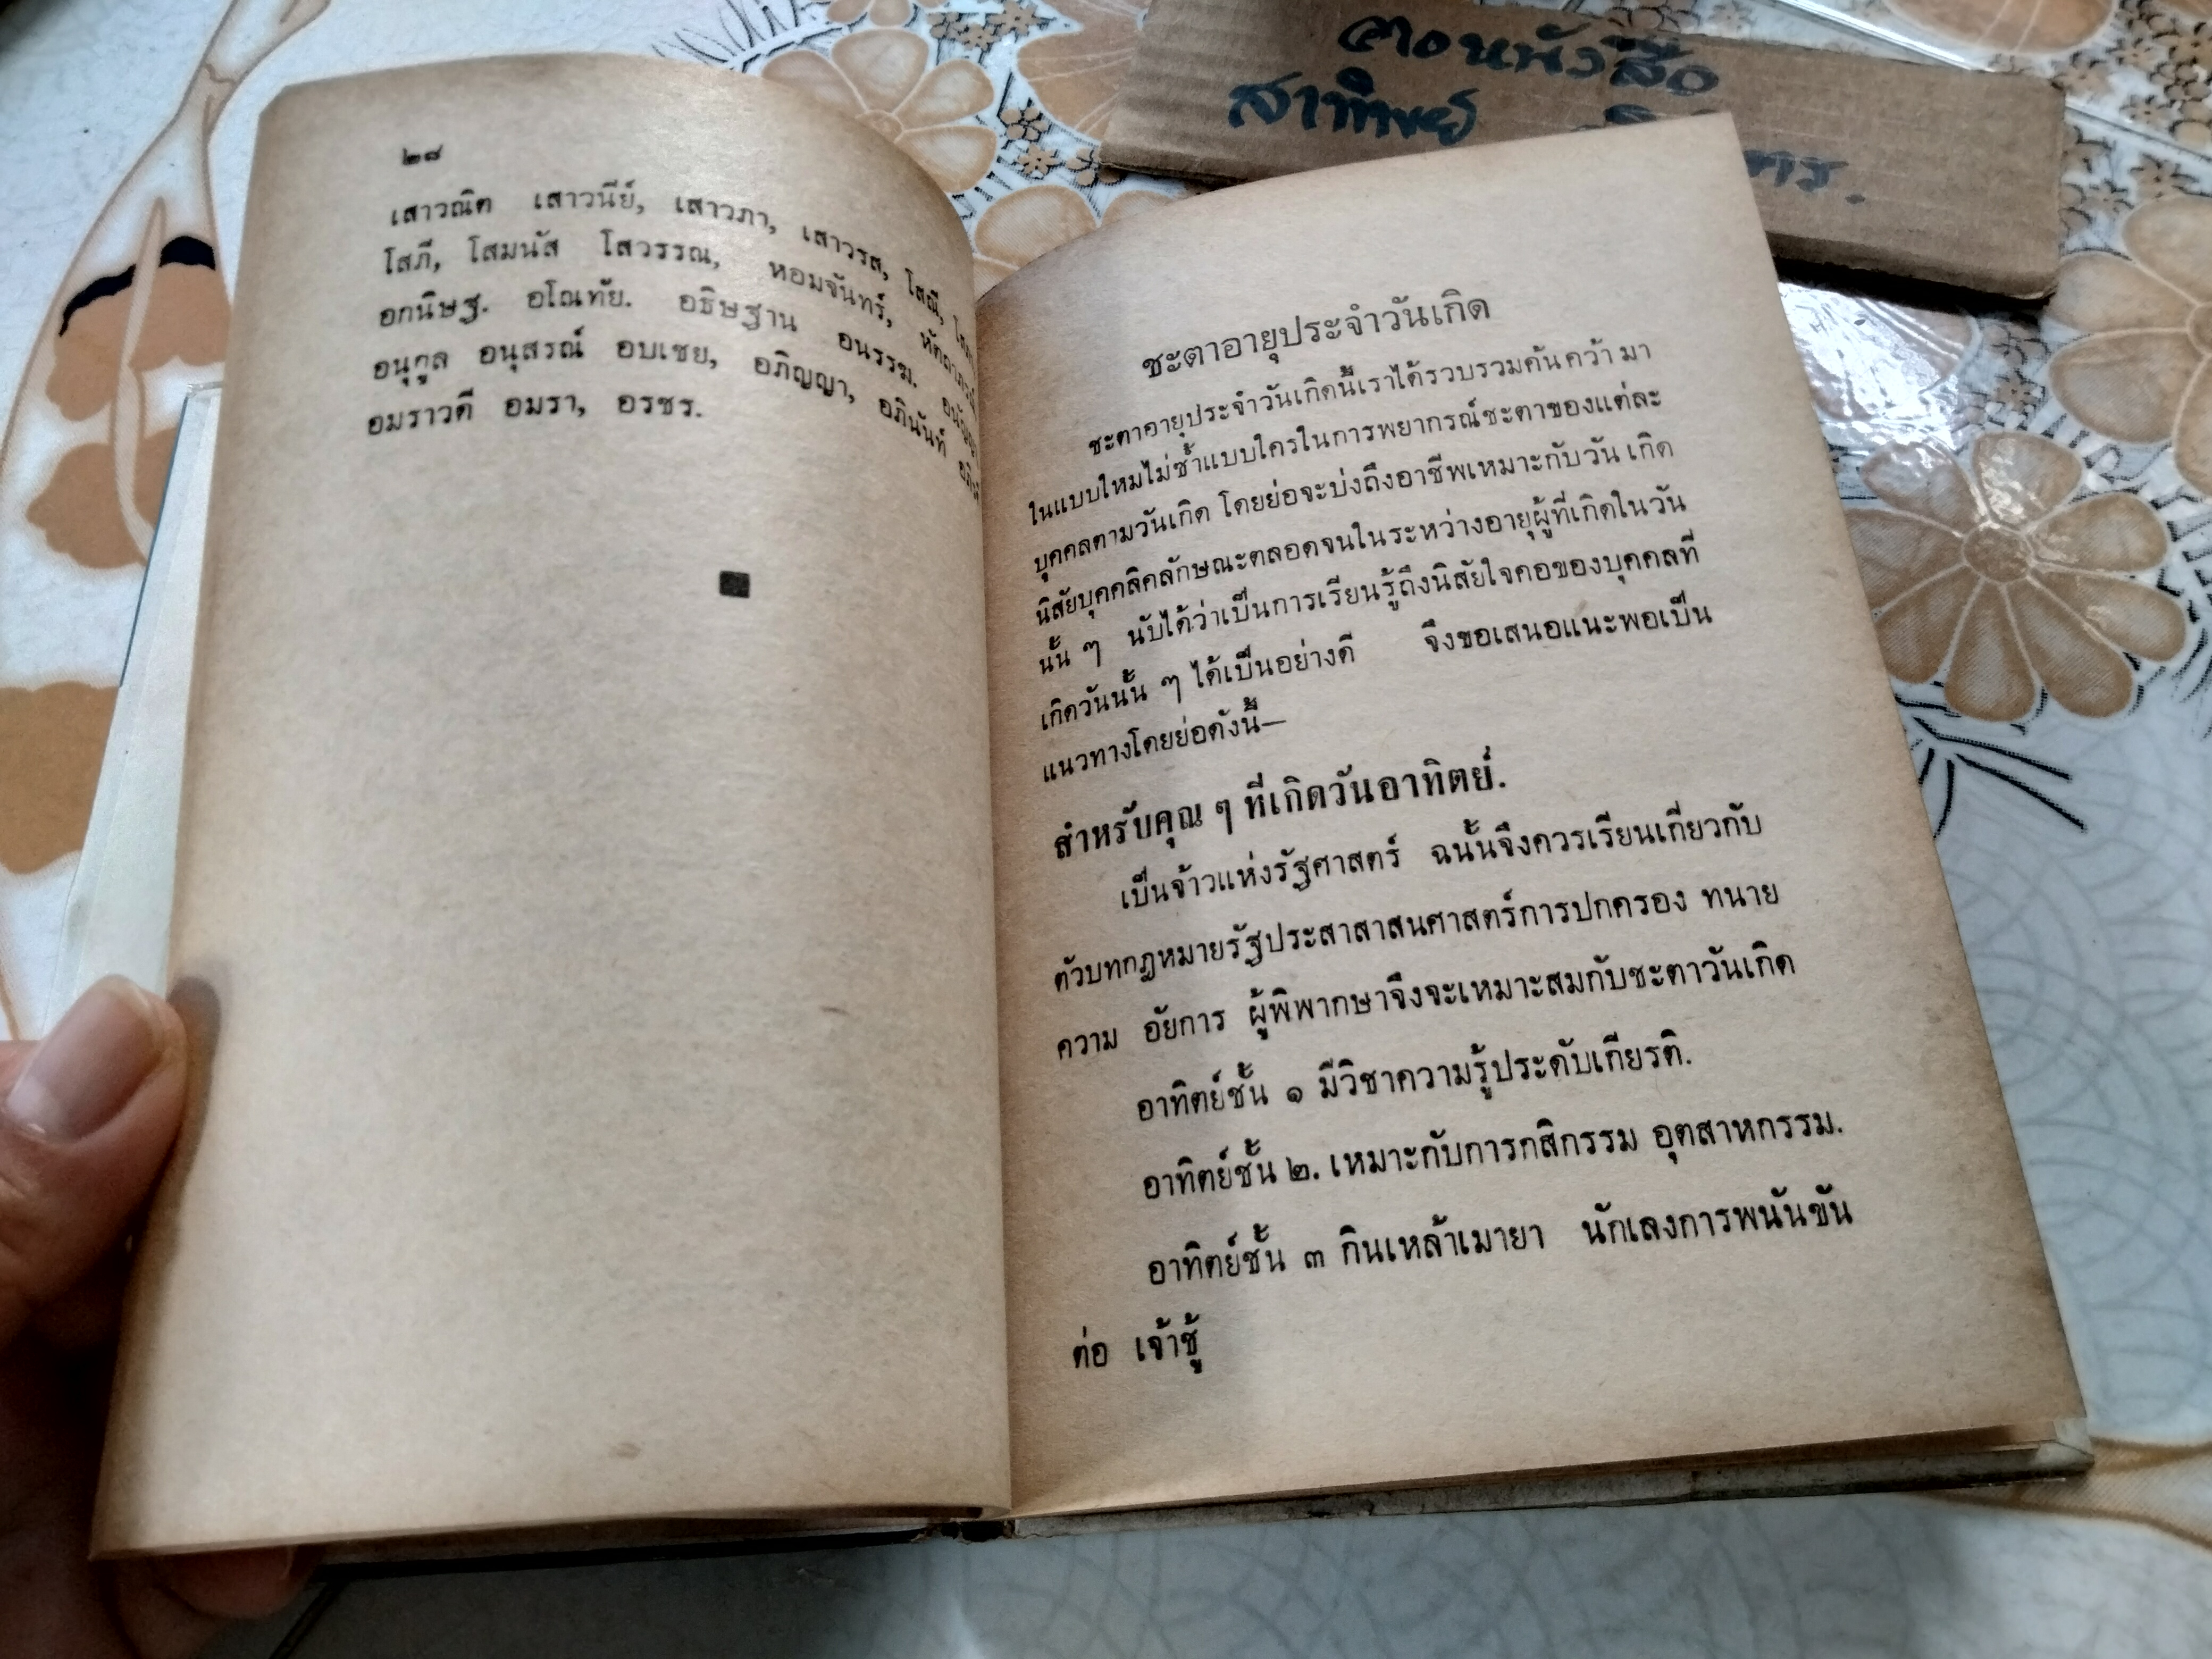 คอหนังสือ
สาทิพย์
๒๘
เสาวณิต เสาวนีย์, เสาวภา, เสาวรส, โสณี,
โสภี, โสมนัส โสวรรณ, หอมจันทร์,
อกนิษฐ. อโณทัย. อธิษฐาน อนรรฆ.
อนุกูล อนุสรณ์ อบเชย, อภิญญา, อภินันท์
อมราวดี อมรา, อรชร.
ชะตาอายุประจำวันเกิด
ชะตาอายุประจำวันเกิดนี้เราได้รวบรวมค้นคว้า มา
ในแบบใหมไม่ซ้ำแบบใครในการพยากรณ์ชะตาของแต่ละ
บุคคลตามวันเกิด โดยย่อจะบ่งถึงอาชีพเหมาะกับวัน เกิด
นิสัยบุคคลิคลักษณะตลอดจนในระหว่างอายุผู้ที่เกิดในวัน
นั้น ๆ นับได้ว่าเป็นการเรียนรู้ถึงนิสัยใจคอของบุคคลที่
เกิดวันนั้น ๆ ได้เป็นอย่างดี จึงขอเสนอแนะพอเป็น
แนวทางโดยย่อดังนี้—
สำหรับคุณ ๆ ที่เกิดวันอาทิตย์.
เป็นจ้าวแห่งรัฐศาสตร์ ฉนั้นจึงควรเรียนเกี่ยวกับ
ตัวบทกฎหมายรัฐประสาสาสนศาสตร์การปกครอง ทนาย
ความ อัยการ ผู้พิพากษาจึงจะเหมาะสมกับชะตาวันเกิด
อาทิตย์ชั้น ๑ มีวิชาความรู้ประดับเกียรติ.
อาทิตย์ชั้น ๒. เหมาะกับการกสิกรรม อุตสาหกรรม.
อาทิตย์ชั้น ๓ กินเหล้าเมายา นักเลงการพนันขัน
ต่อ เจ้าชู้